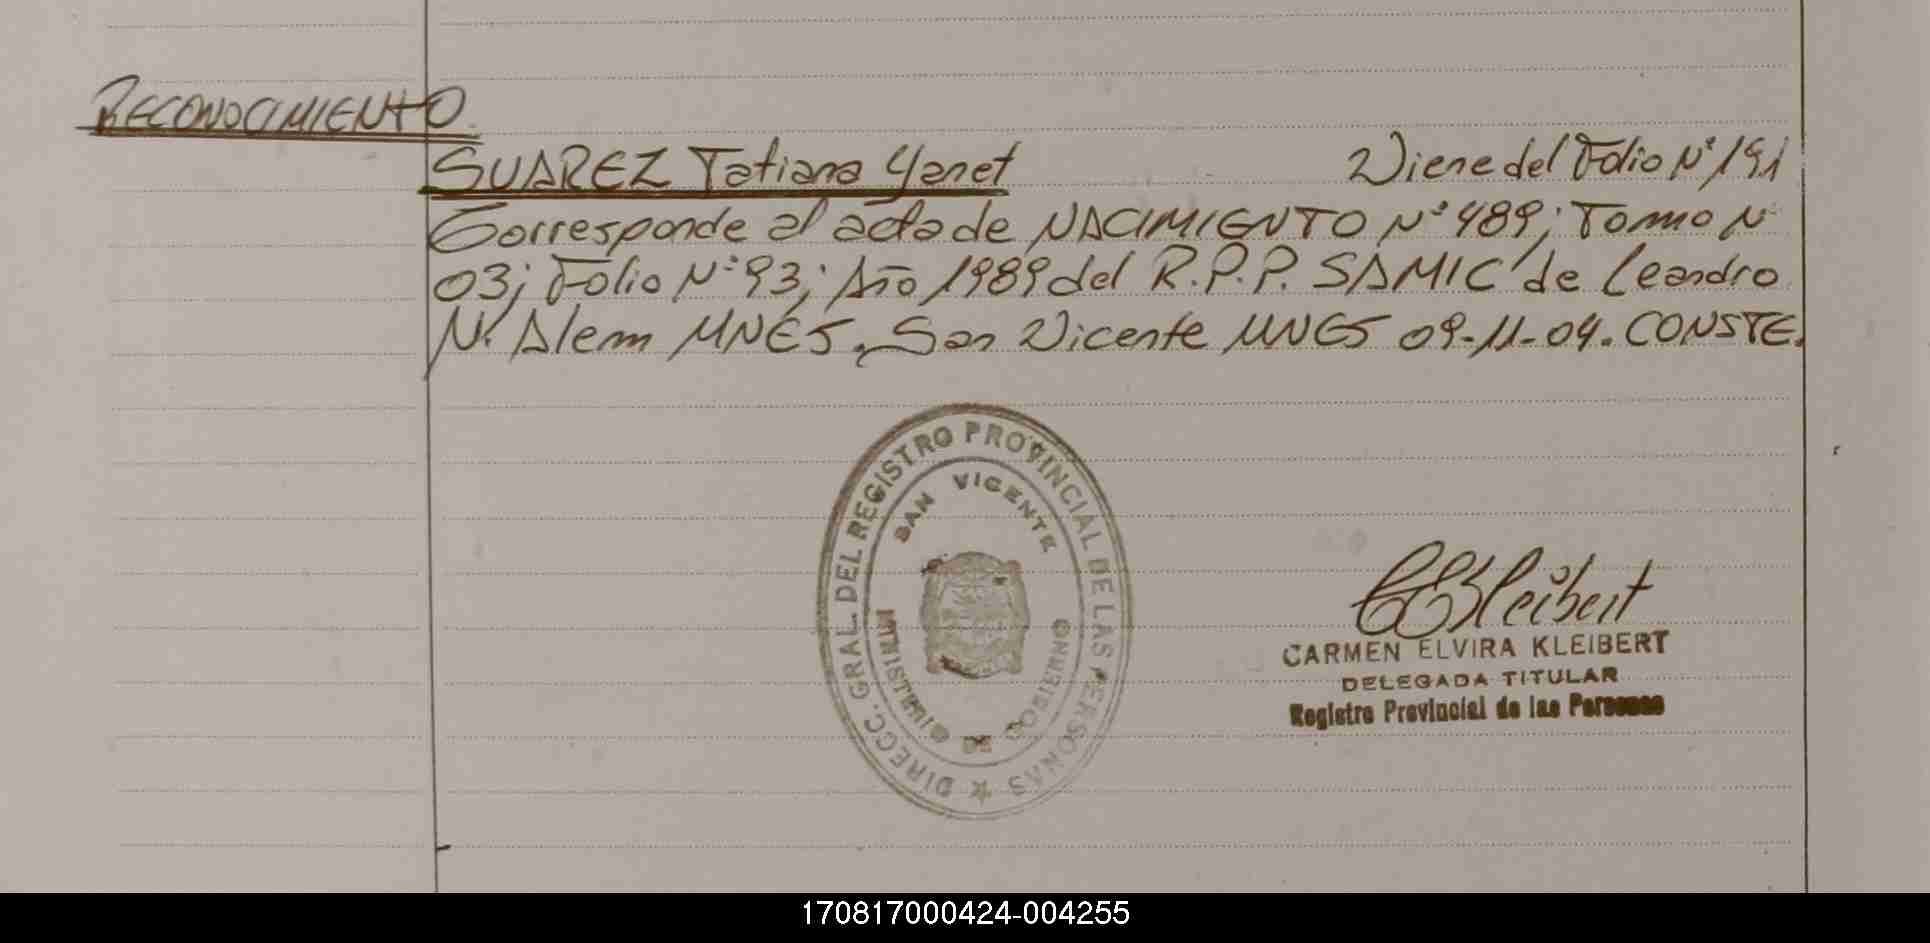 RECONOCIMIENTO
SUAREZ Tatiana Yanet Viene del Folio Nº 191
Corresponde al acta de NACIMIENTO Nº 489; Tomo Nº
03; Folio Nº 93; Año 1989 del R.P.P. SAMIC de Leandro
N. Alem MNES. San Vicente MNES 09-11-04. CONSTE.
DIRECC. GRAL. DEL REGISTRO PROVINCIAL DE LAS PERSONAS
SAN VICENTE
MINISTERIO DE GOBIERNO
CEKleibert
CARMEN ELVIRA KLEIBERT
DELEGADA TITULAR
Registro Provincial de las Personas
170817000424-004255